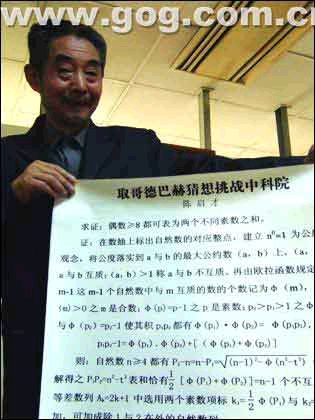 www.gog.com.cn
取哥德巴赫猜想挑战中科院
陈启才
求证：偶数≥8都可表为两个不同素数之和。
证：在数轴上标出自然数的对应整点，建立n⁰=1为公
观念，将公度落实到a与b的最大公约数(a，b)上，(a，
a与b互质；(a，b)＞1称a与b不互质。再由欧拉函数规定
m-1这m-1个自然数中与m互质的数的个数记为φ(m)，
(m)＞0之m是合数；φ(p)=p-1之p是素数；p₂＞p₁＞1之
与φ(p₂)=p₂-1使其积p₁p₂都有φ(p₁)·φ(p₂)=φ(p₁p₂)，
p₁p₂-1=φ(p₁)·φ(p₂)+[φ(p₁)+φ(p₂)]
则：自然数n≥4都有P₂-n=n-P₁=√(n-1)²-φ(n²-t²)
解得之P₁P₂=n²-t²表和恰有½[φ(P₁)+φ(P₂)]=n-1个不互
等差数列Aₖ=2k+1中选用两个素数项标k₁=½φ(P₁)与k₂
加，可加成除1与2在外的自然数列